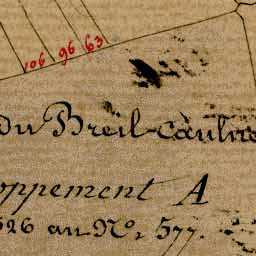 106 96 63
du Breil-
oppement A
526 au No. 577.